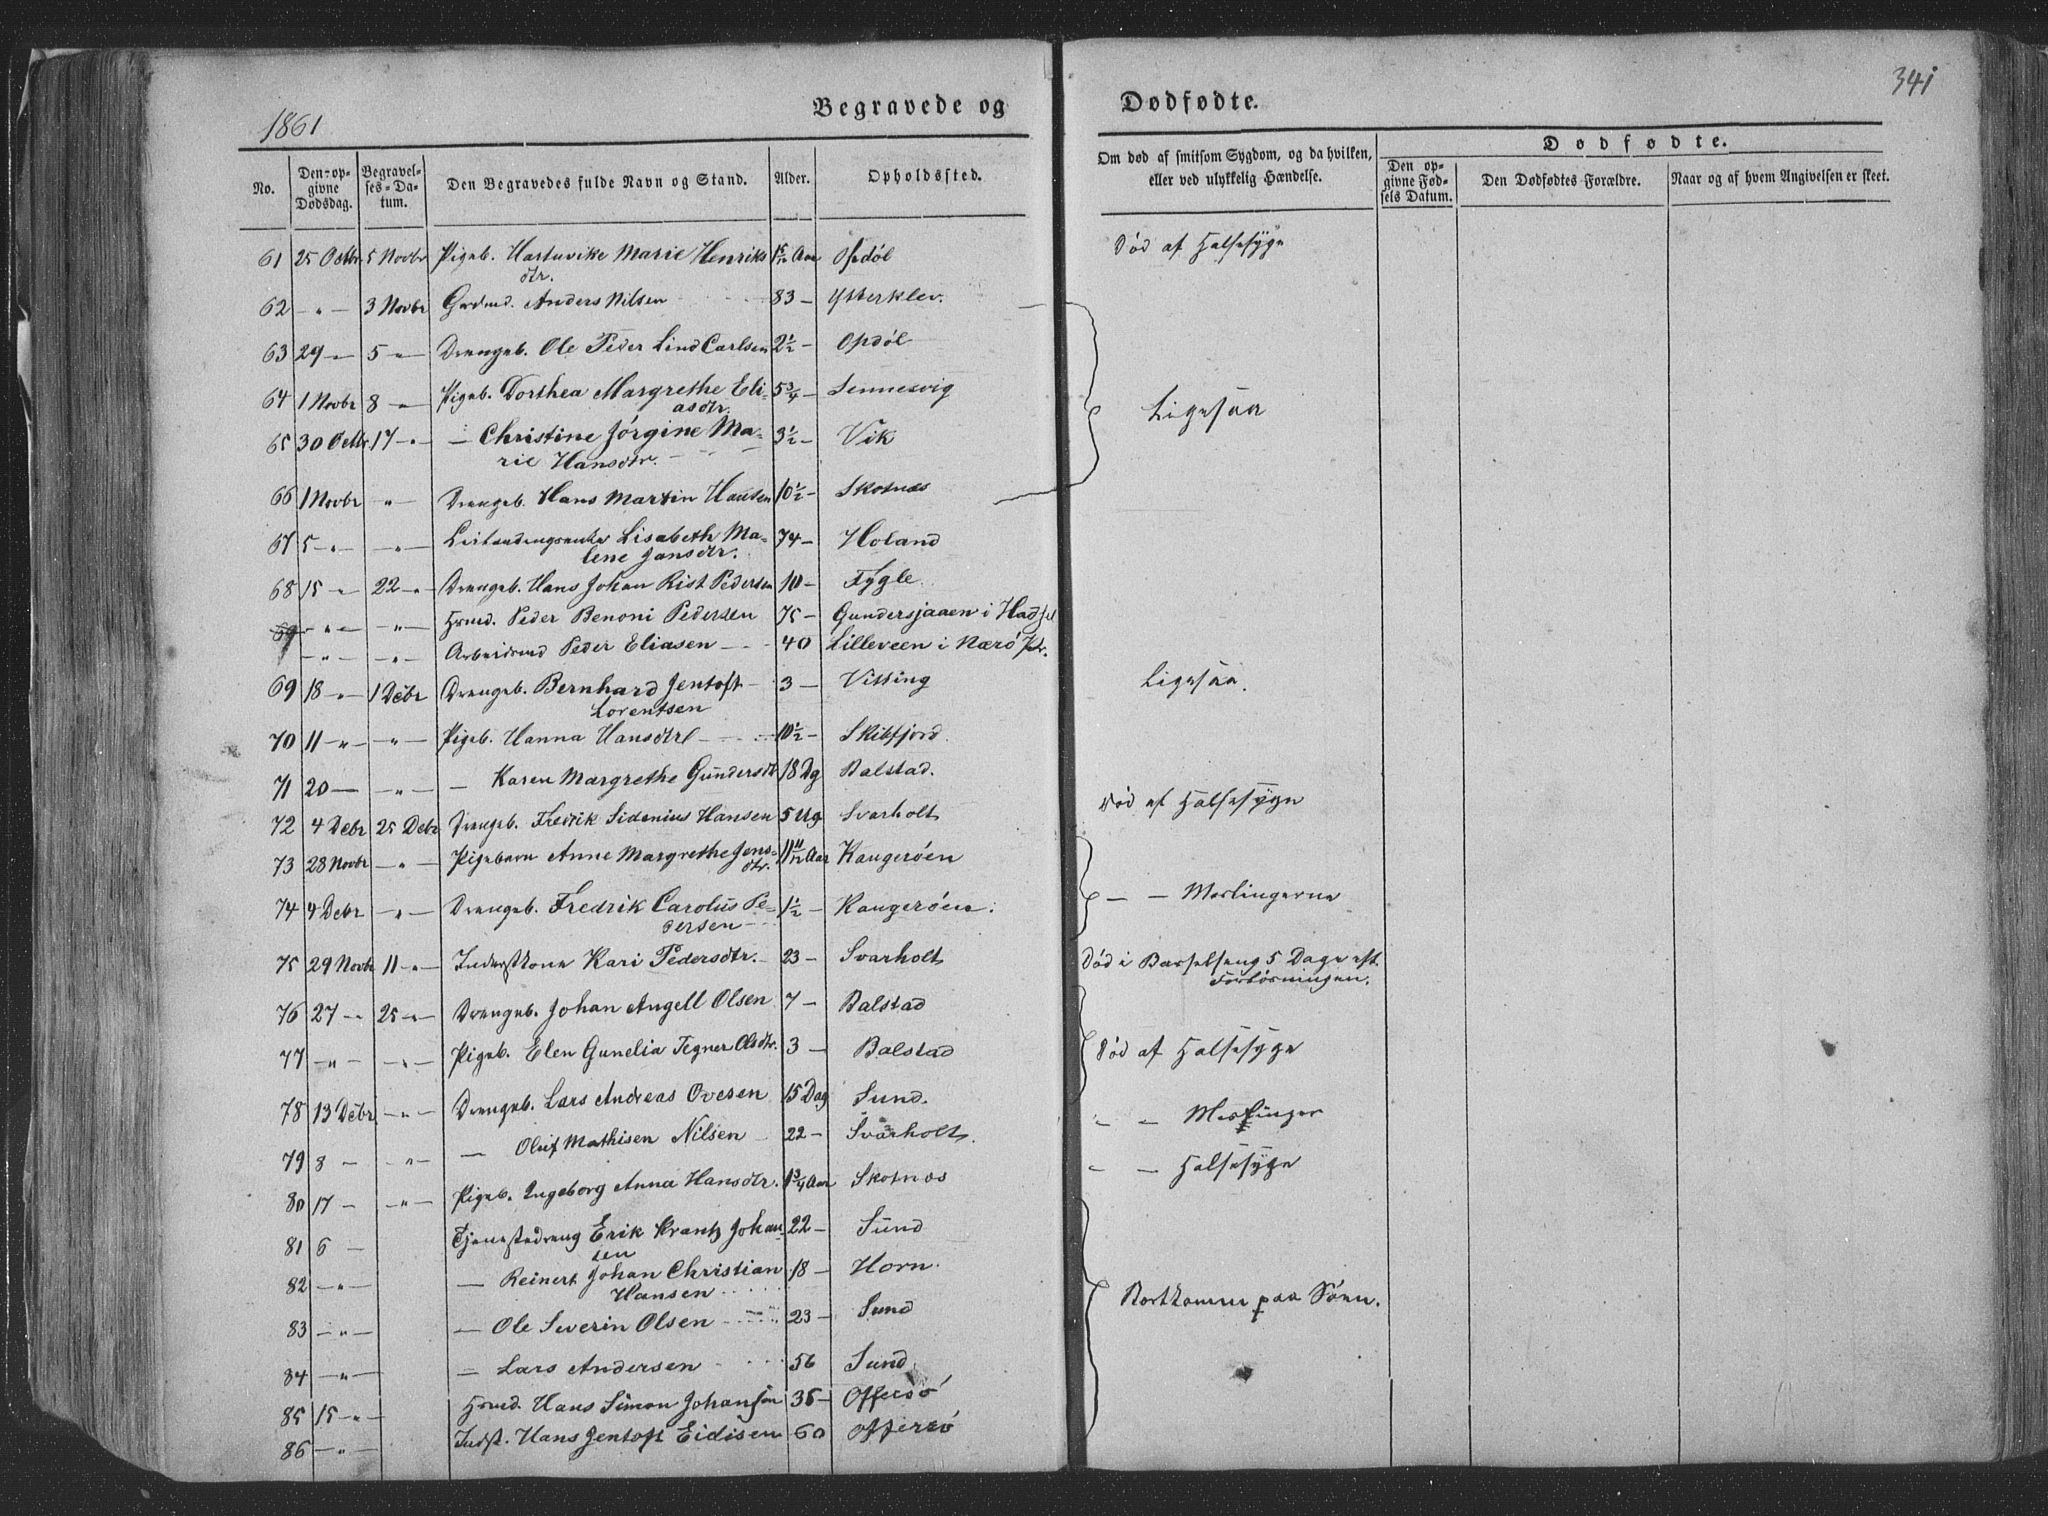 341
1861
Begravede og Dødfødte.
No.
Den opgivne Dødsdag.
Begravelses-Datum.
Den Begravedes fulde Navn og Stand.
Alder.
Opholdssted.
Om død af smitsom Sygdom, og da hvilken, eller ved ulykkelig Hændelse.
Dødfødte.
Den opgivne Fødsels Datum.
Den Dødfødtes Forældre.
Naar og af hvem Angivelsen er skeet.
61 25 Octbr 5 Novbr Pigeb. Hartuvike Marie Henriksdtr. Opdøl Død af Halssyge
62 " 3 Novbr Gaardmd. Anders Nilsen 83 Ytterklev.
63 29 " 5 " Drengeb. Ole Peder Lind Carlsen 2 1/2 Opdøl
64 1 Novbr 8 " Pigeb. Dorthea Margrethe Eliasdtr. 5 3/4 Sennesvig Ligesaa
65 30 Octbr 17 " — Christine Jørgine Marie Hansdtr. 3 1/2 Vik
66 1 Novbr " Drengeb. Hans Martin Hansen 10 1/2 Skotnæs
67 5 " " Lisabeth Malene Jansdtr. 74 Holand
68 15 " 22 " Drengeb. Hans Johan Rist Pedersen 10 Fygle
69 " " Hmd. Peder Benoni Pedersen 75 Gundersjaaen i Hadsel
" " Arbeidsmd Peder Eliasen 40 Lilleveen i Nærø Pr.
69 18 " 1 Debr Drengeb. Bernhard Jentoft Lorentsen 3 Vitting Ligesaa.
70 11 " " Pigeb. Hanna Hansdtr 10 1/2 Skibfjord
71 20 " — Karen Margrethe Gundersdtr 18 Dg Balstad.
72 4 Debr 25 Debr Drengeb. Fredrik Sidenius Hansen 5 Ug Svarholt Død af Halssyge
73 28 Novbr " Pigebarn Anne Margrethe Jensdtr. 11 11/12 Aar Kangerøen
74 4 Debr " Drengeb. Fredrik Carolus Pedersen 1 1/2 Kangerøen. — — Meslingerne
75 29 Novbr 11 " Inderstkone Kari Pedersdtr. 23 Svarholt Død i Barselseng 5 Dage eft. Forløsningen.
76 27 " 25 " Drengeb. Johan Angell Olsen 7 Balstad
77 " " Pigeb. Elen Gunelia Tegner Olsdtr. 3 Balstad Død af Halssyge
78 13 Debr " Drengeb. Lars Andreas Ovesen 15 Dag Sund. " — Meslinger
79 8 " — Oluf Mathisen Nilsen 22 Svarholt. " — Halssyge
80 17 " Pigeb. Ingeborg Anna Hansdtr. 1 3/4 Aar Skotnæs
81 6 Tjenestedreng Erik Krantz Johansen 22 Sund
82 " — Reinert Johan Christian Hansen 18 Horn. Bortkommen paa Søen.
83 " — Ole Severin Olsen 23 Sund
84 " — Lars Andersen 56 Sund
85 15 " Hmd. Hans Simon Johansen 35 Offersø
86 " Indst. Hans Jentoft Eidisen 60 Offersø